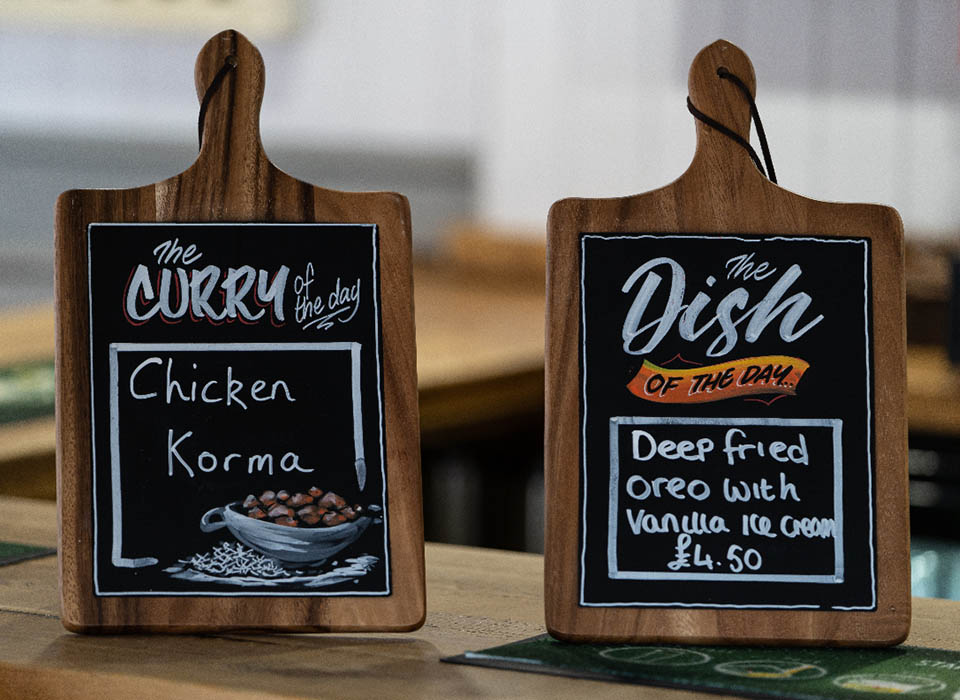 The
CURRY of the day
Chicken
Korma
The
Dish
OF THE DAY..
Deep fried
oreo with
Vanilla Ice cream
£4.50